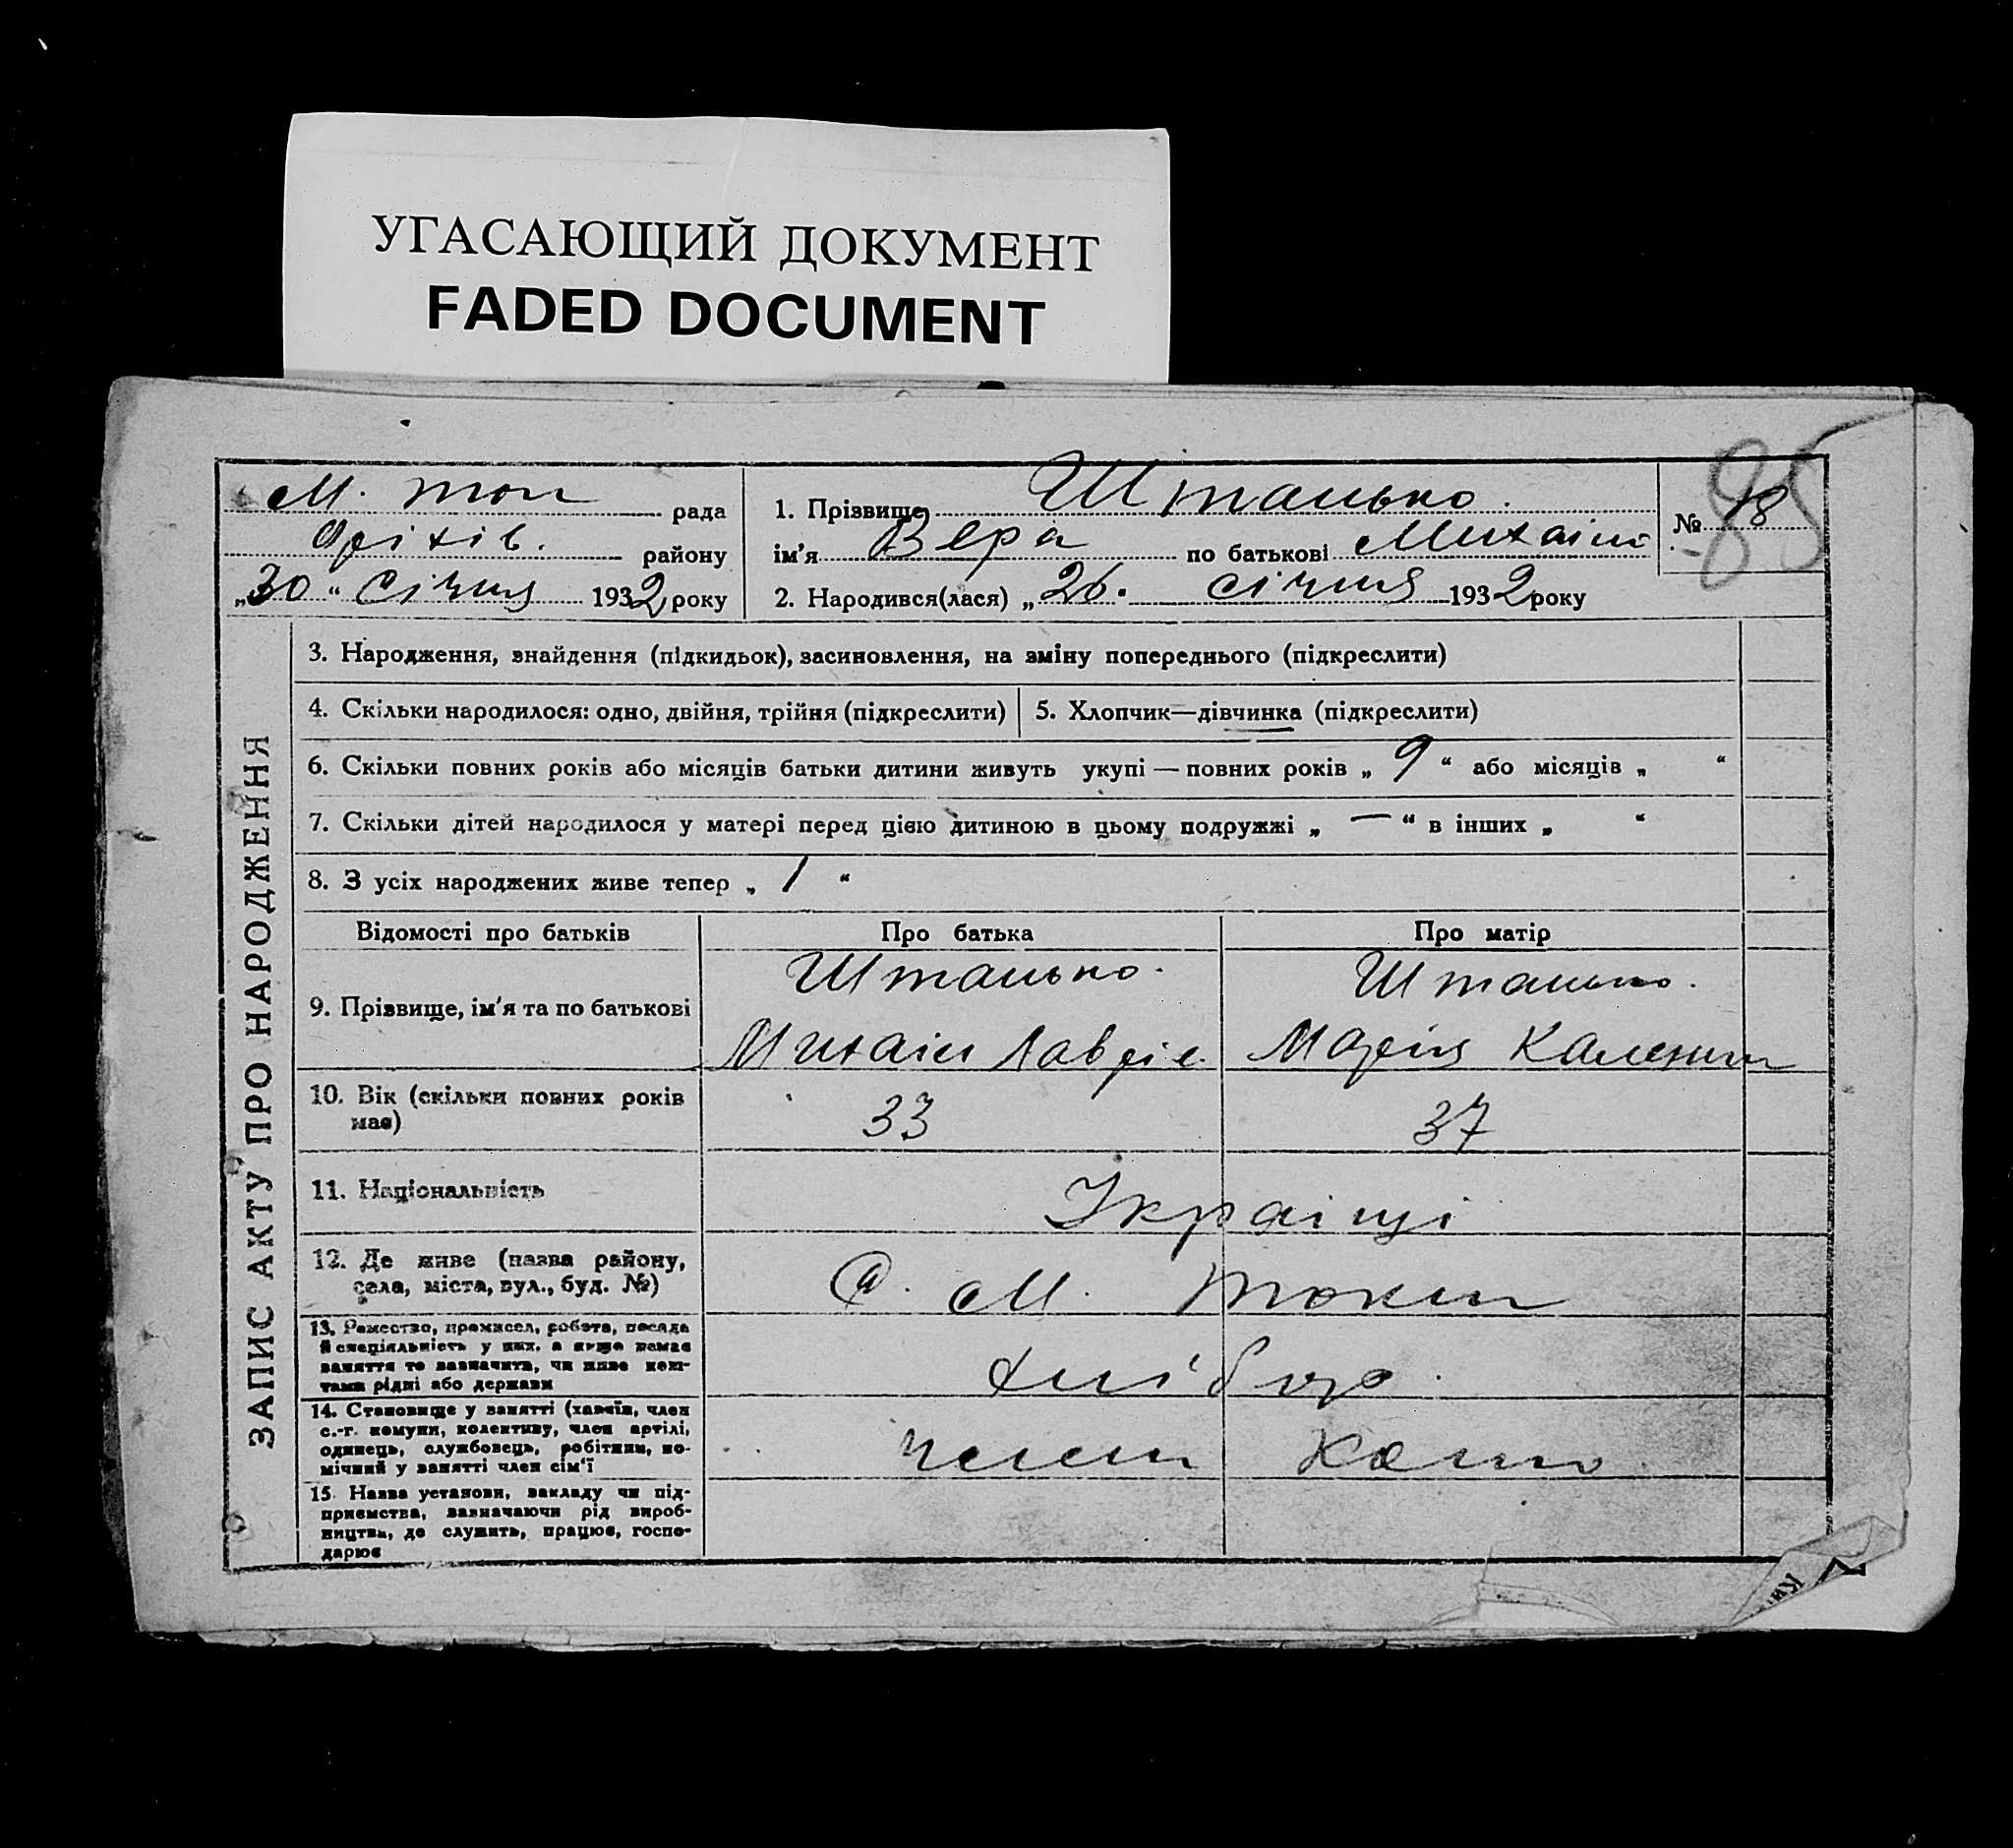 УГАСАЮЩИЙ ДОКУМЕНТ
FADED DOCUMENT
М. ток рада
Оріхів. району
„30“ Січня 1932 року
1. Прізвище Штанько.
ім’я Вера по батькові Михайл
2. Народився(лася) „26. січня 1932 року
№ 18
85
ЗАПИС АКТУ ПРО НАРОДЖЕННЯ
3. Народження, знайдення (підкидьок), засиновлення, на зміну попереднього (підкреслити)
4. Скільки народилося: одно, двійня, трійня (підкреслити)
5. Хлопчик—дівчинка (підкреслити)
6. Скільки повних років або місяців батьки дитини живуть укупі — повних років „ 9 “ або місяців „ “
7. Скільки дітей народилося у матері перед цією дитиною в цьому подружжі „ — “ в інших „ “
8. З усіх народжених живе тепер „ 1 “
Відомості про батьків
Про батька
Про матір
9. Прізвище, ім’я та по батькові
Штанько.
Михайл Лавріє.
Штанько.
Марія
10. Вік (скільки повних років
має)
33
37
11. Національність
Українці
12. Де живе (назва району,
села, міста, вул., буд. №)
С. М. Токм
13. Ремество, промисел, робота, посада
й спеціяльність у них, а якщо немає
заняття то зазначити, чи живе кош-
тами рідні або держави
хлібор.
14. Становище у занятті (хазяїн, член
с.-г. комуни, колективу, член артілі,
одинець, службовець, робітник, по-
мічний у занятті член сім’ї
член
15. Назва установи, закладу чи під-
приємства, зазначаючи рід вироб-
ництва, де служить, працює, госпо-
дарює